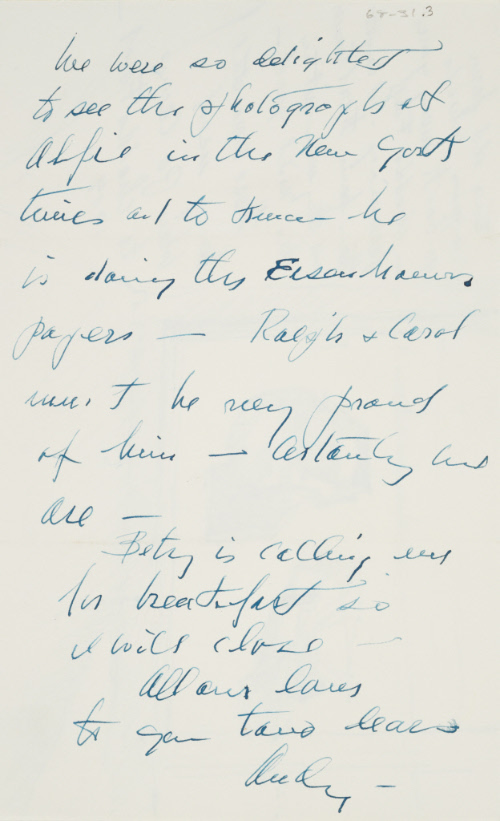 68-31.3
We were so delighted
to see the photograph of
Alfie in the New York
Times and to know he
is doing the Eisenhower
papers — Ralph & Carol
must be very proud
of him — Certainly we
are —
Betsy is calling me
for breakfast so
I will close —
All our loves
to you two dears
Andy —